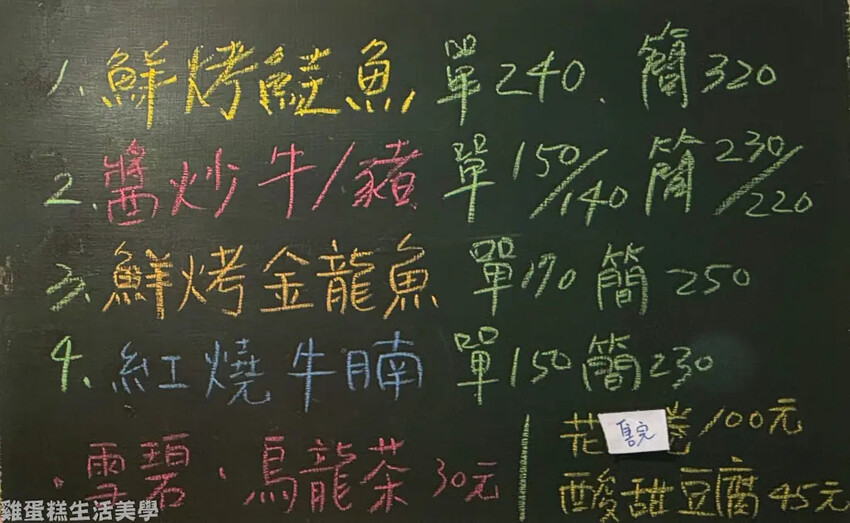 1. 鮮烤鮭魚 單240、簡320
2. 醬炒牛/豬 單150/140 簡230/220
3. 鮮烤金龍魚 單170 簡250
4、紅燒牛腩 單150簡230
.雪碧、烏龍茶30元
花 售完 卷100元
酸甜豆腐45元
雞蛋糕生活美學